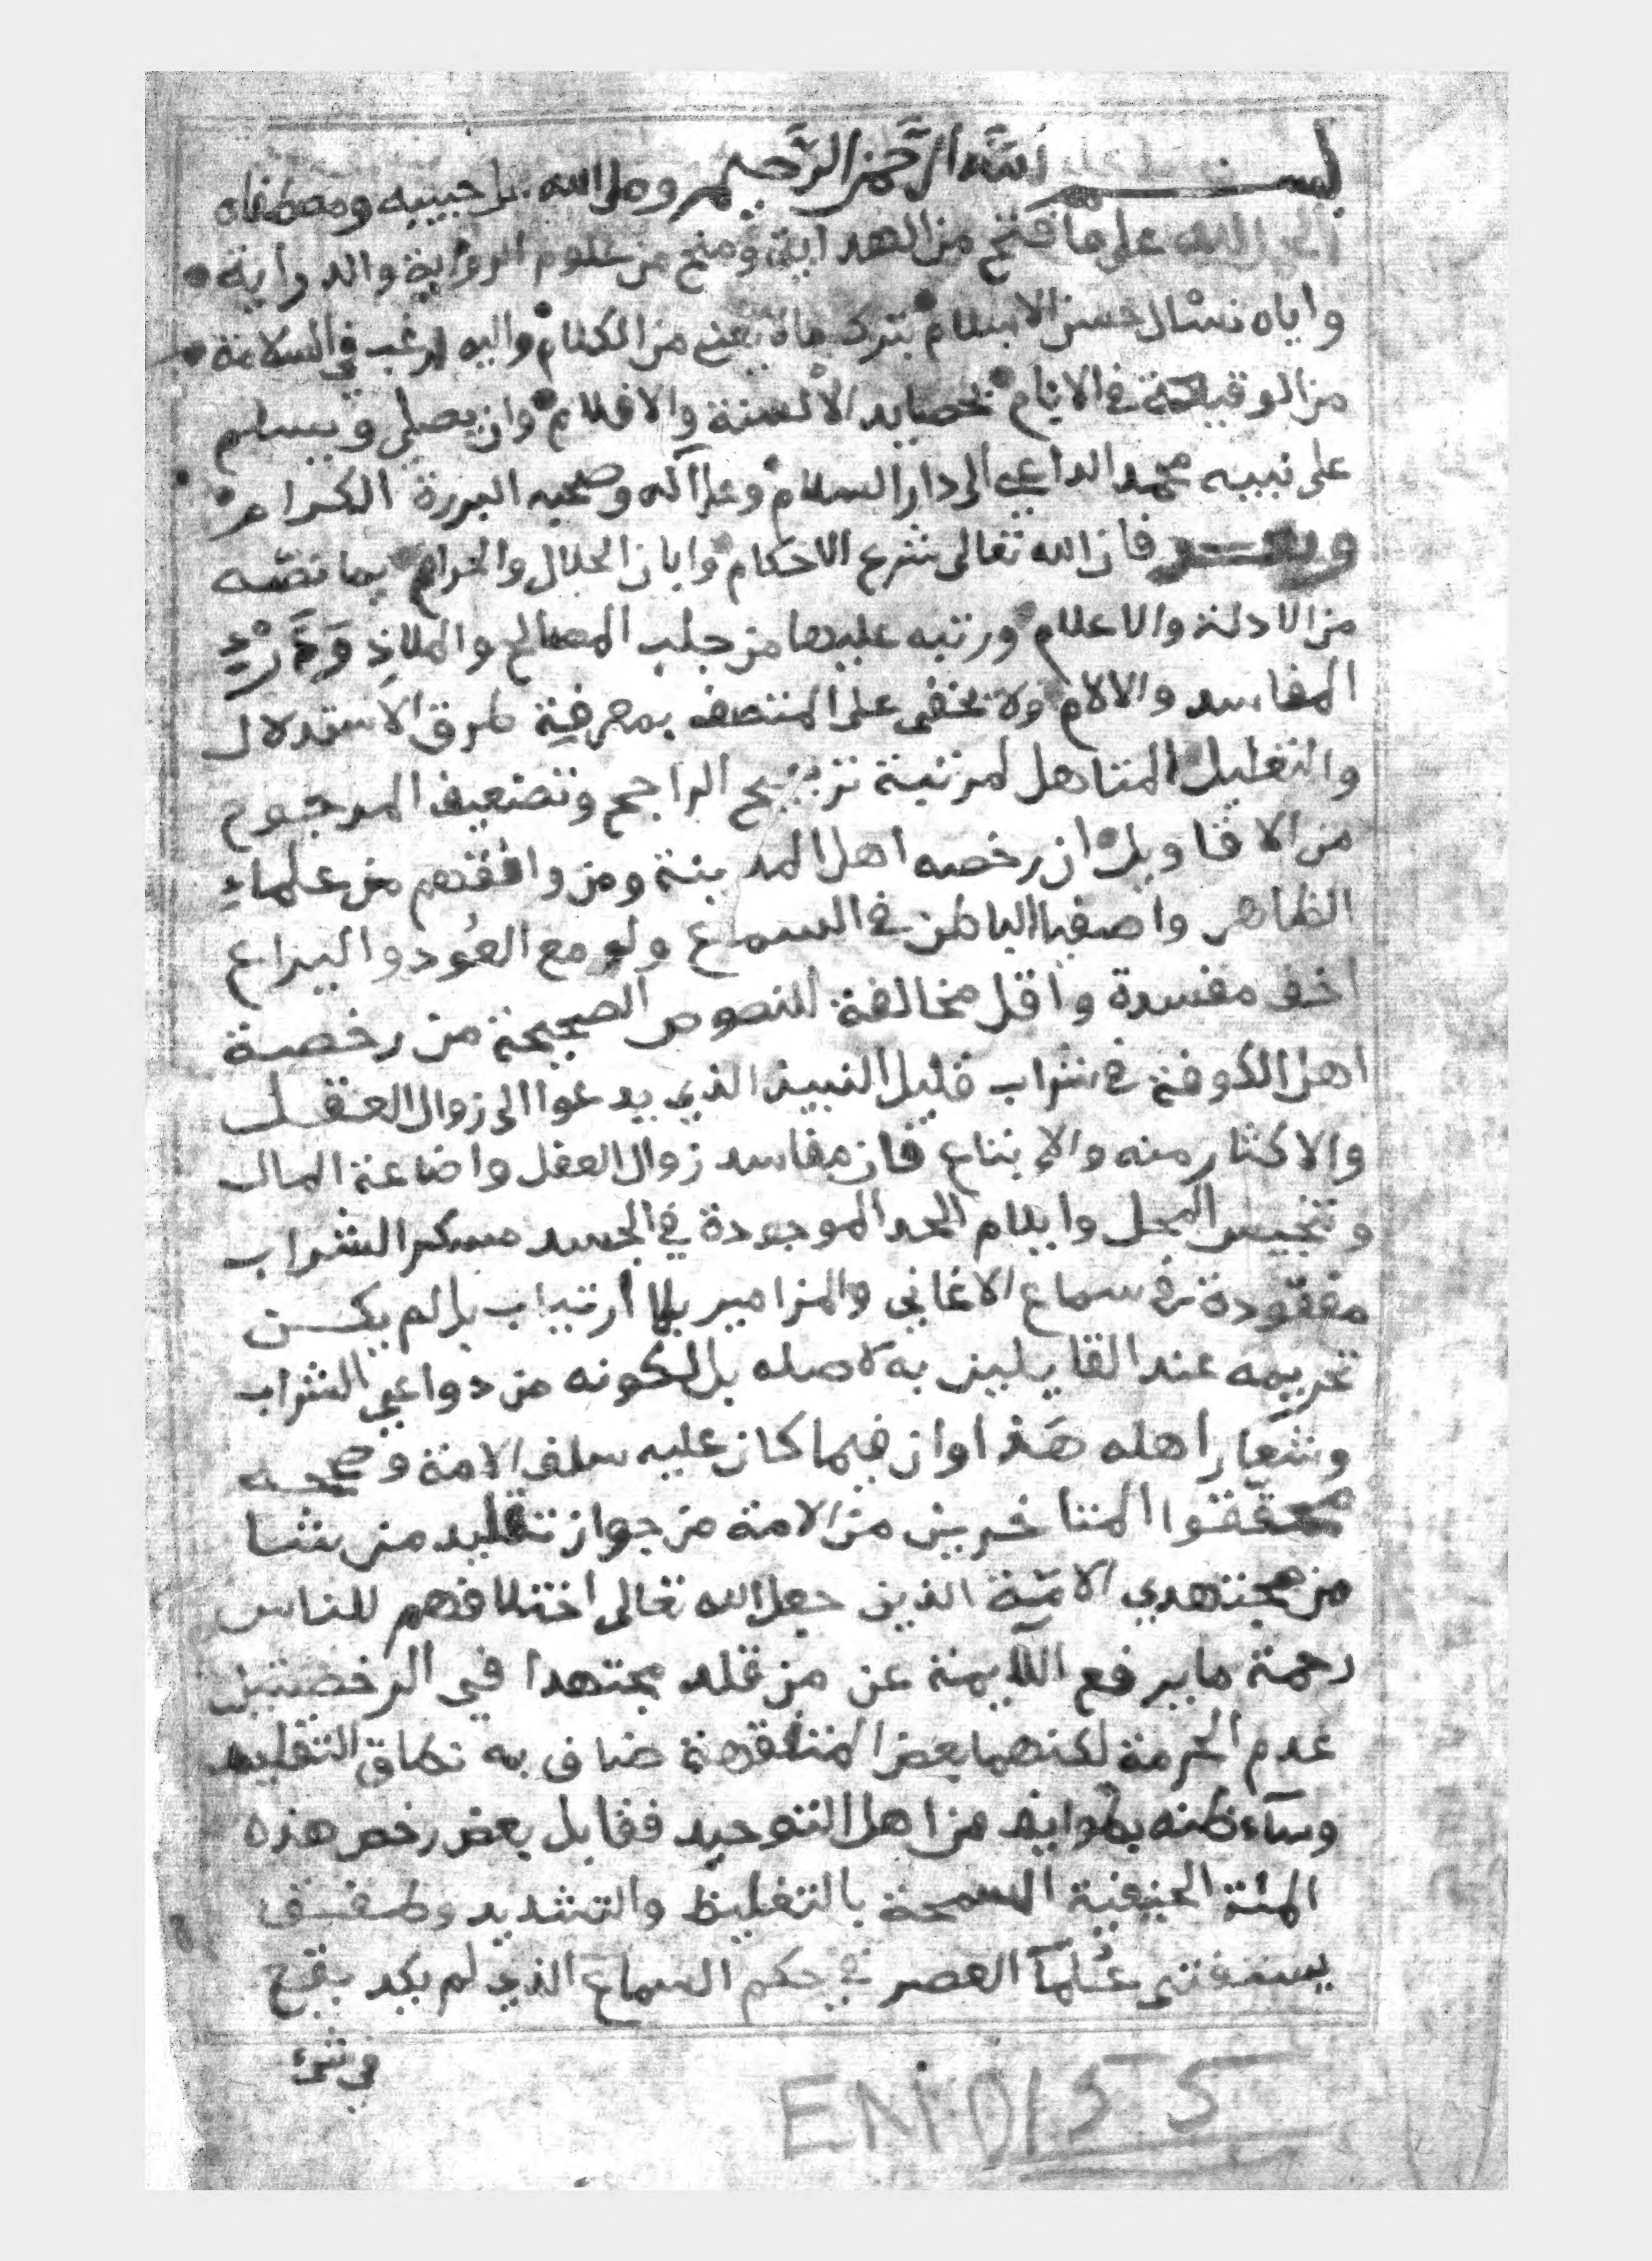 بسم الله الرحمن الرحيم وصلى الله على حبيبه ومصطفاه
الحمد لله على ما فتح من الهداية ومنح من علوم الرواية والدراية
واياه نسال حسن الاسلام بترك مالا يعني من الكلام واليه ارغب في السلامة
من الوقيعة في الانام بحصايد الالسنة والاقلام وان يصلي ويسلم
على نبيه محمد الداعي الى دار السلام وعلى آله وصحبه البررة الكرام
وبعد فان الله تعالى شرع الاحكام وابان الحلال والحرام بما نصبه
من الادلة والاعلام ورتبه عليها من جلب المصالح والملاذ ودرء
المفاسد والالام ولا يخفى على المتصف بمعرفة طرق الاستدلال
والتعليل المتاهل لمرتبة ترجيح الراجح وتضعيف المرجوح
من الاقاويل ان رخصه اهل المدينة ومن وافقهم من علماء
الظاهر واصفيا الباطن في السماع ولو مع العود واليراع
اخف مفسدة واقل مخالفة للنصوص الصحيحة من رخصة
اهل الكوفة في شراب قليل النبيذ الذي يدعوا الى زوال العقل
والاكثار منه والابتياع فان مفاسد زوال العقل واضاعة المال
وتنجيس المحل وايلام الحد الموجودة في الجسد مسكر الشراب
مفقودة في سماع الاغاني والمزامير بلا ارتياب بل لم يكن
تحريمه عند القايلين به لاصله بل لكونه من دواعي الشراب
وشعار اهله هذا وان فيما كان عليه سلف الامة وصححه
محققوا المتاخرين من الامة من جواز تقليد من شا
من مجتهدي الامة الذين جعل الله تعالى اختلافهم للناس
رحمة ما يرفع اللايمة عن من قلد مجتهدا في الرخصتين
عدم الحرمة لكنهما بعض المتفقهة ضاق به نطاق التقليد
وساء ظنه بطوايف من اهل التوحيد فقابل بعض رخص هذه
الملة الحنيفية السمحة بالتغليظ والتشديد وطفق
يستفتي علمآ العصر في حكم السماع الذي لم يكد يقع
في شي